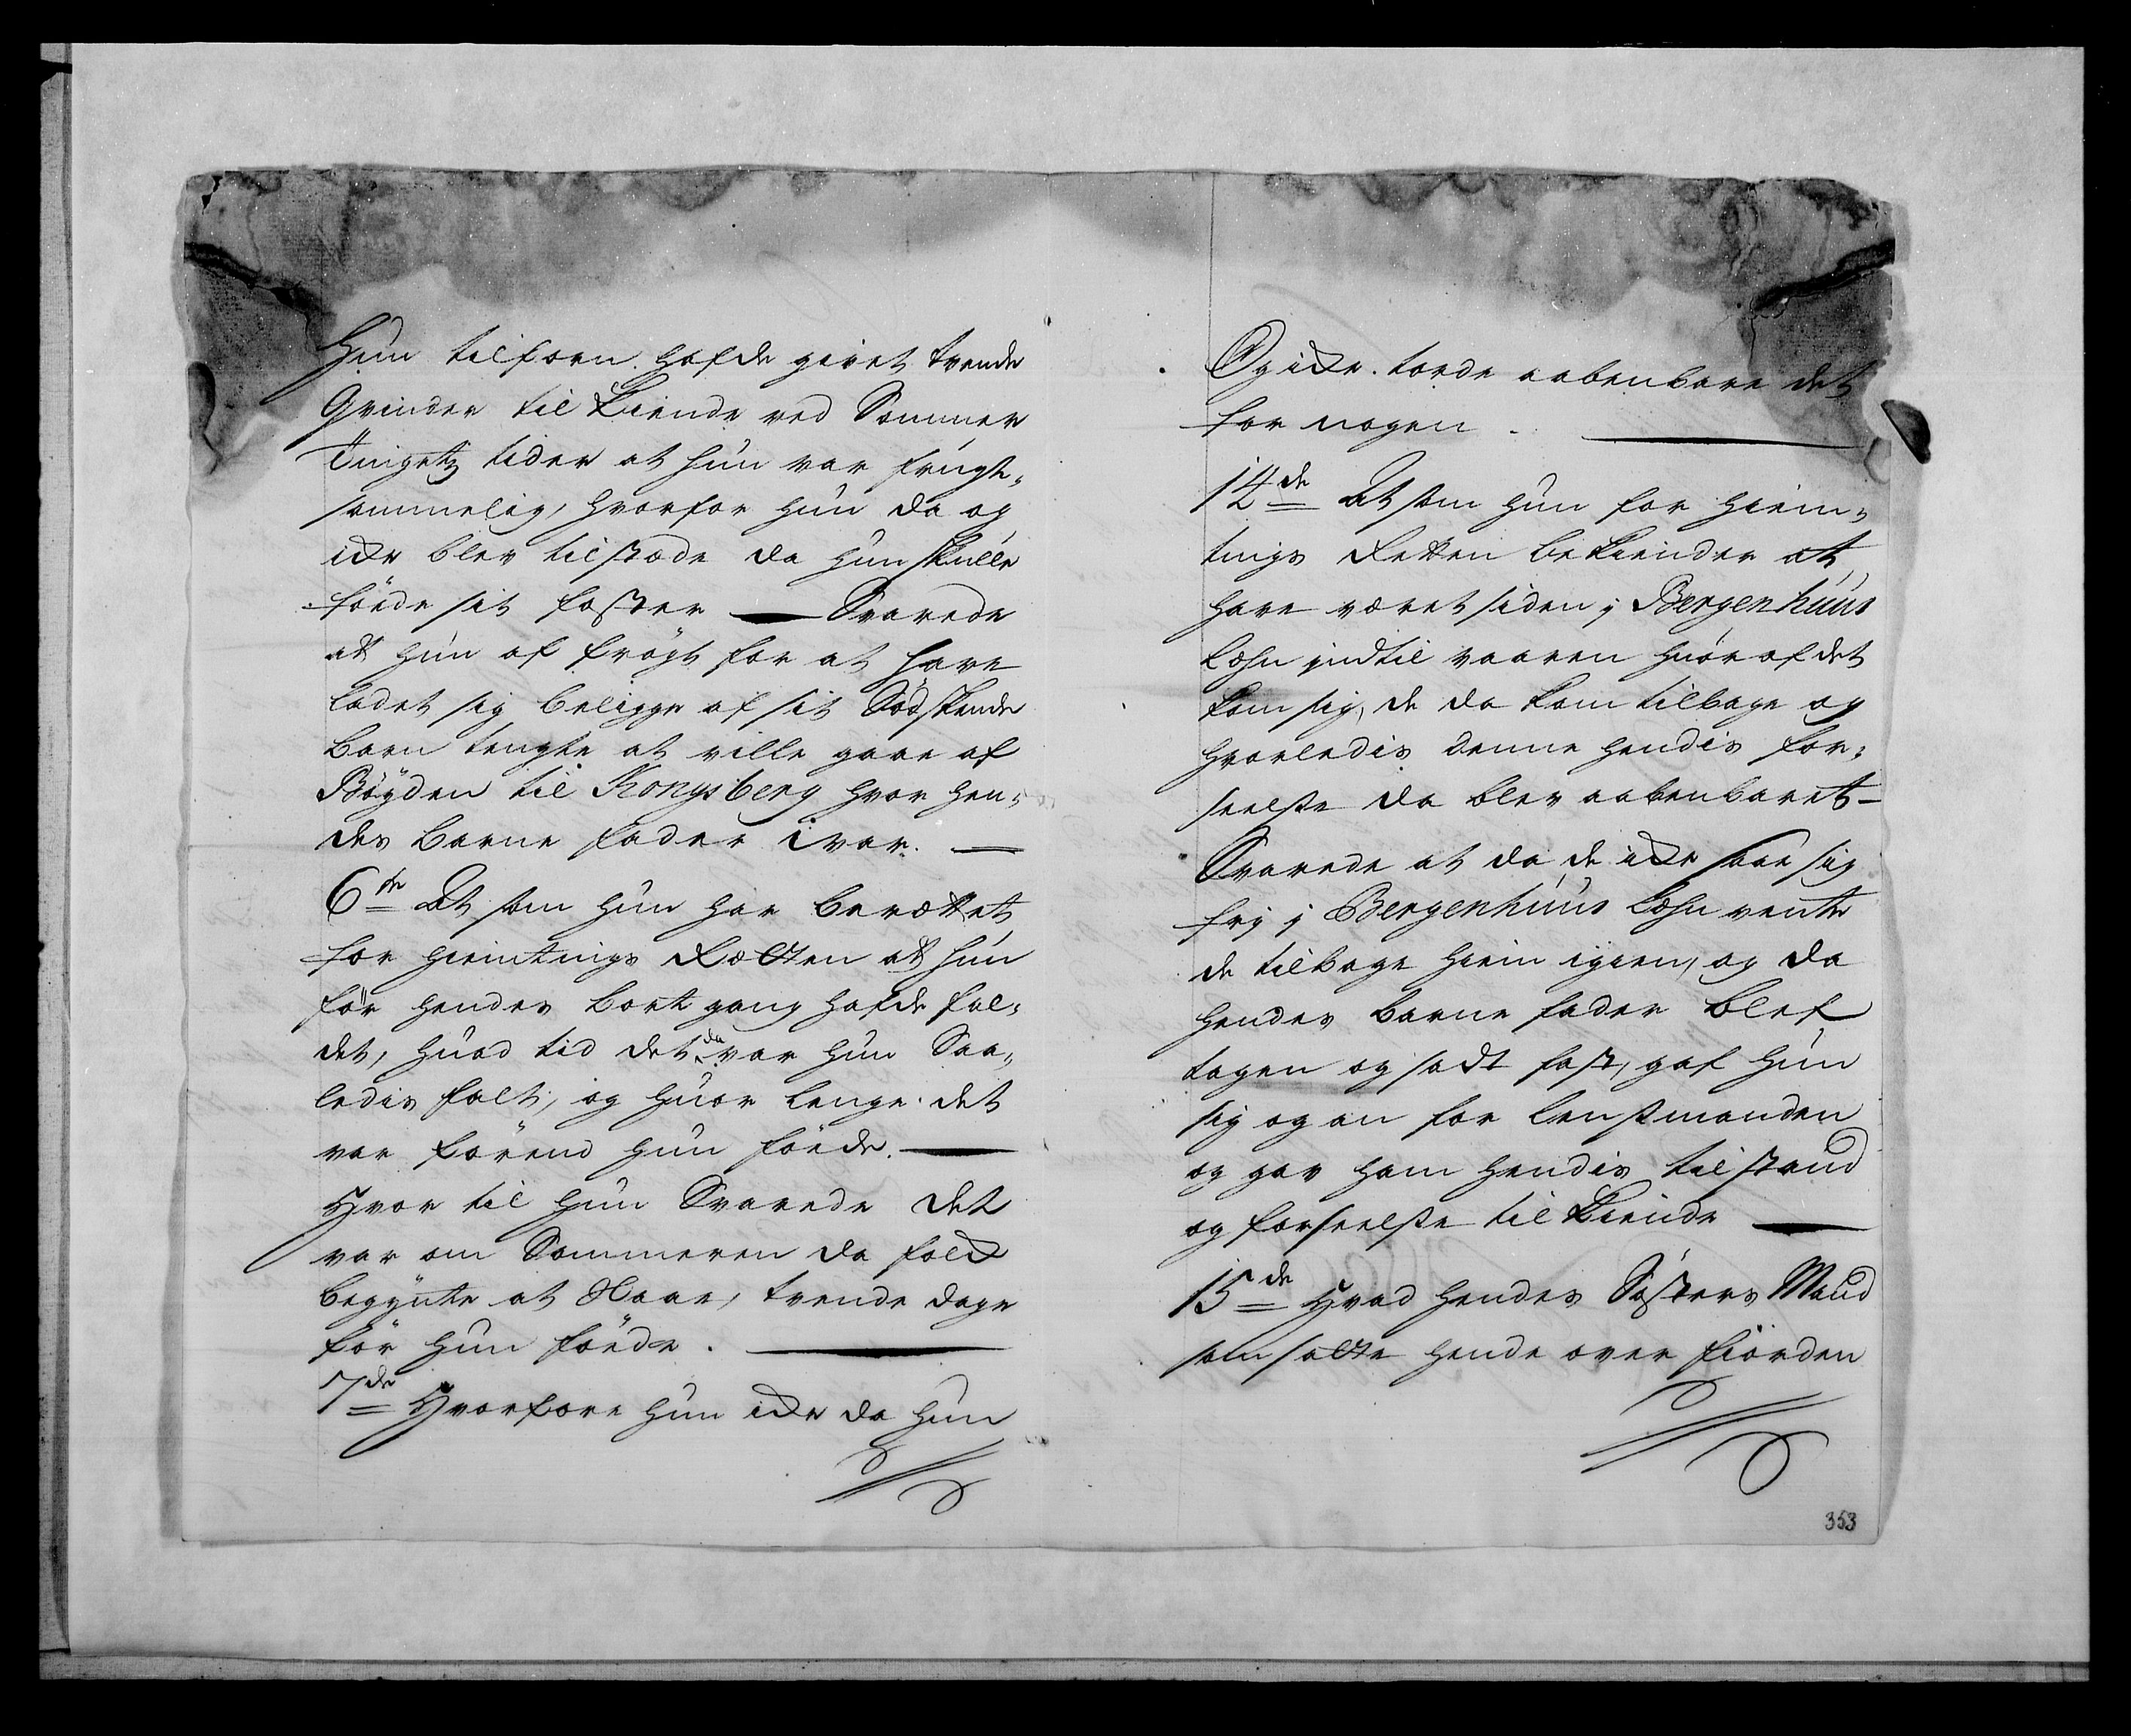 Hun tilforn hafde givet tvende
Qvinder til Kiende ved Sommer
Tingetz tider at hun var frugt,,
sommelig, hvorfor hun da og
icke blev tilstæde da hun skulle
föede sit foster — Svarede
at hun af frögt for at have
ladet sig beligge af sit Södskende
barn tengte at ville gaae af
Bÿgden til Kongsberg hvor hen,,
des barne fader ivar. —
6te At som hun har berættet
for hiemtings Rætten at hun
för hendes bort gang hafde fal,,
det, huad tid det da var hun Saa,,
ledis falt, og huor lenge det
var förend hun föede. —
Hvor til hun Svarede det
var om Sommeren da folck
begÿnte at Slaae, tvende dage
för hun föede. —
7de Hvorfore hun icke da hun
Og icke torde aabenbare det
for nogen. —
14de At som hun for hiem,,
tings Retten bekiender at
have været siden i Bergenhuus
Læhn indtil vaaren huoraf det
kom sig, de da kom tilbage og
hvorledis denne hendis for,,
seelse da blev aabenbaret —
Svarede at da de icke saae sig
frij i Bergenhuus Læhn vente
de tilbage hiem igien, og da
hendes barne fader blef
tagen og sadt fast, gaf hun
sig og an for Lensmanden
og gav ham hendis tilstand
og forseelse til Kiende —
15de Hvad hendes Sösters Mand
som satte hende over fiörden
353